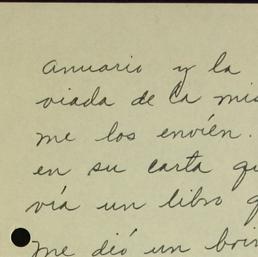 anuario y la
viada de la mis
me los envíen.
en su carta qu
vía un libro q
me dió un brin